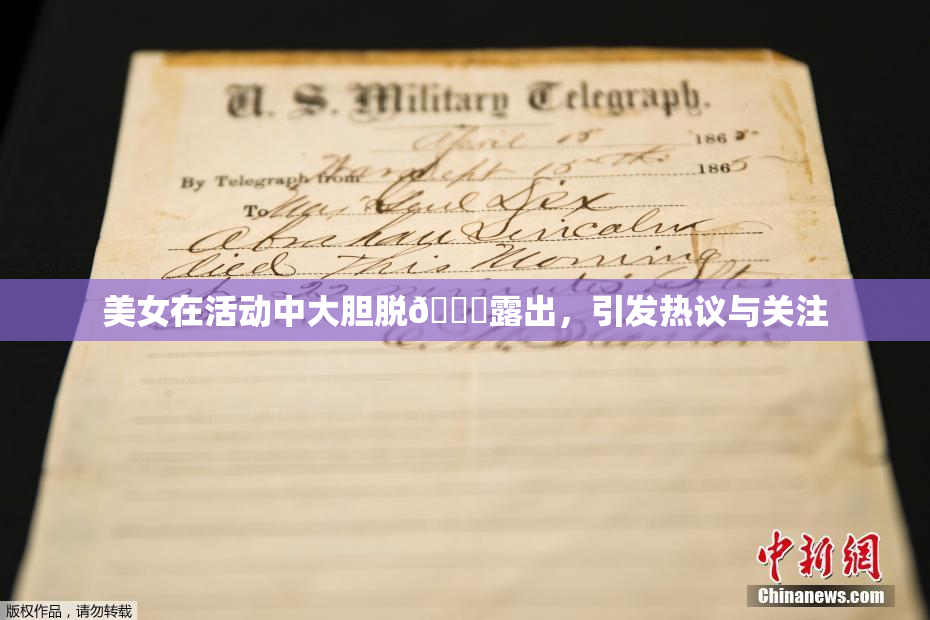 U. S. Military Telegraph.
April 15 1865
By Telegraph from War Dept 15th 1865
To Maj Genl Dix
Abraham Lincoln
died This Morning
22 minutes after
美女在活动中大胆脱ð露出，引发热议与关注
E. M. Stanton
中新网
Chinanews.com
版权作品，请勿转载